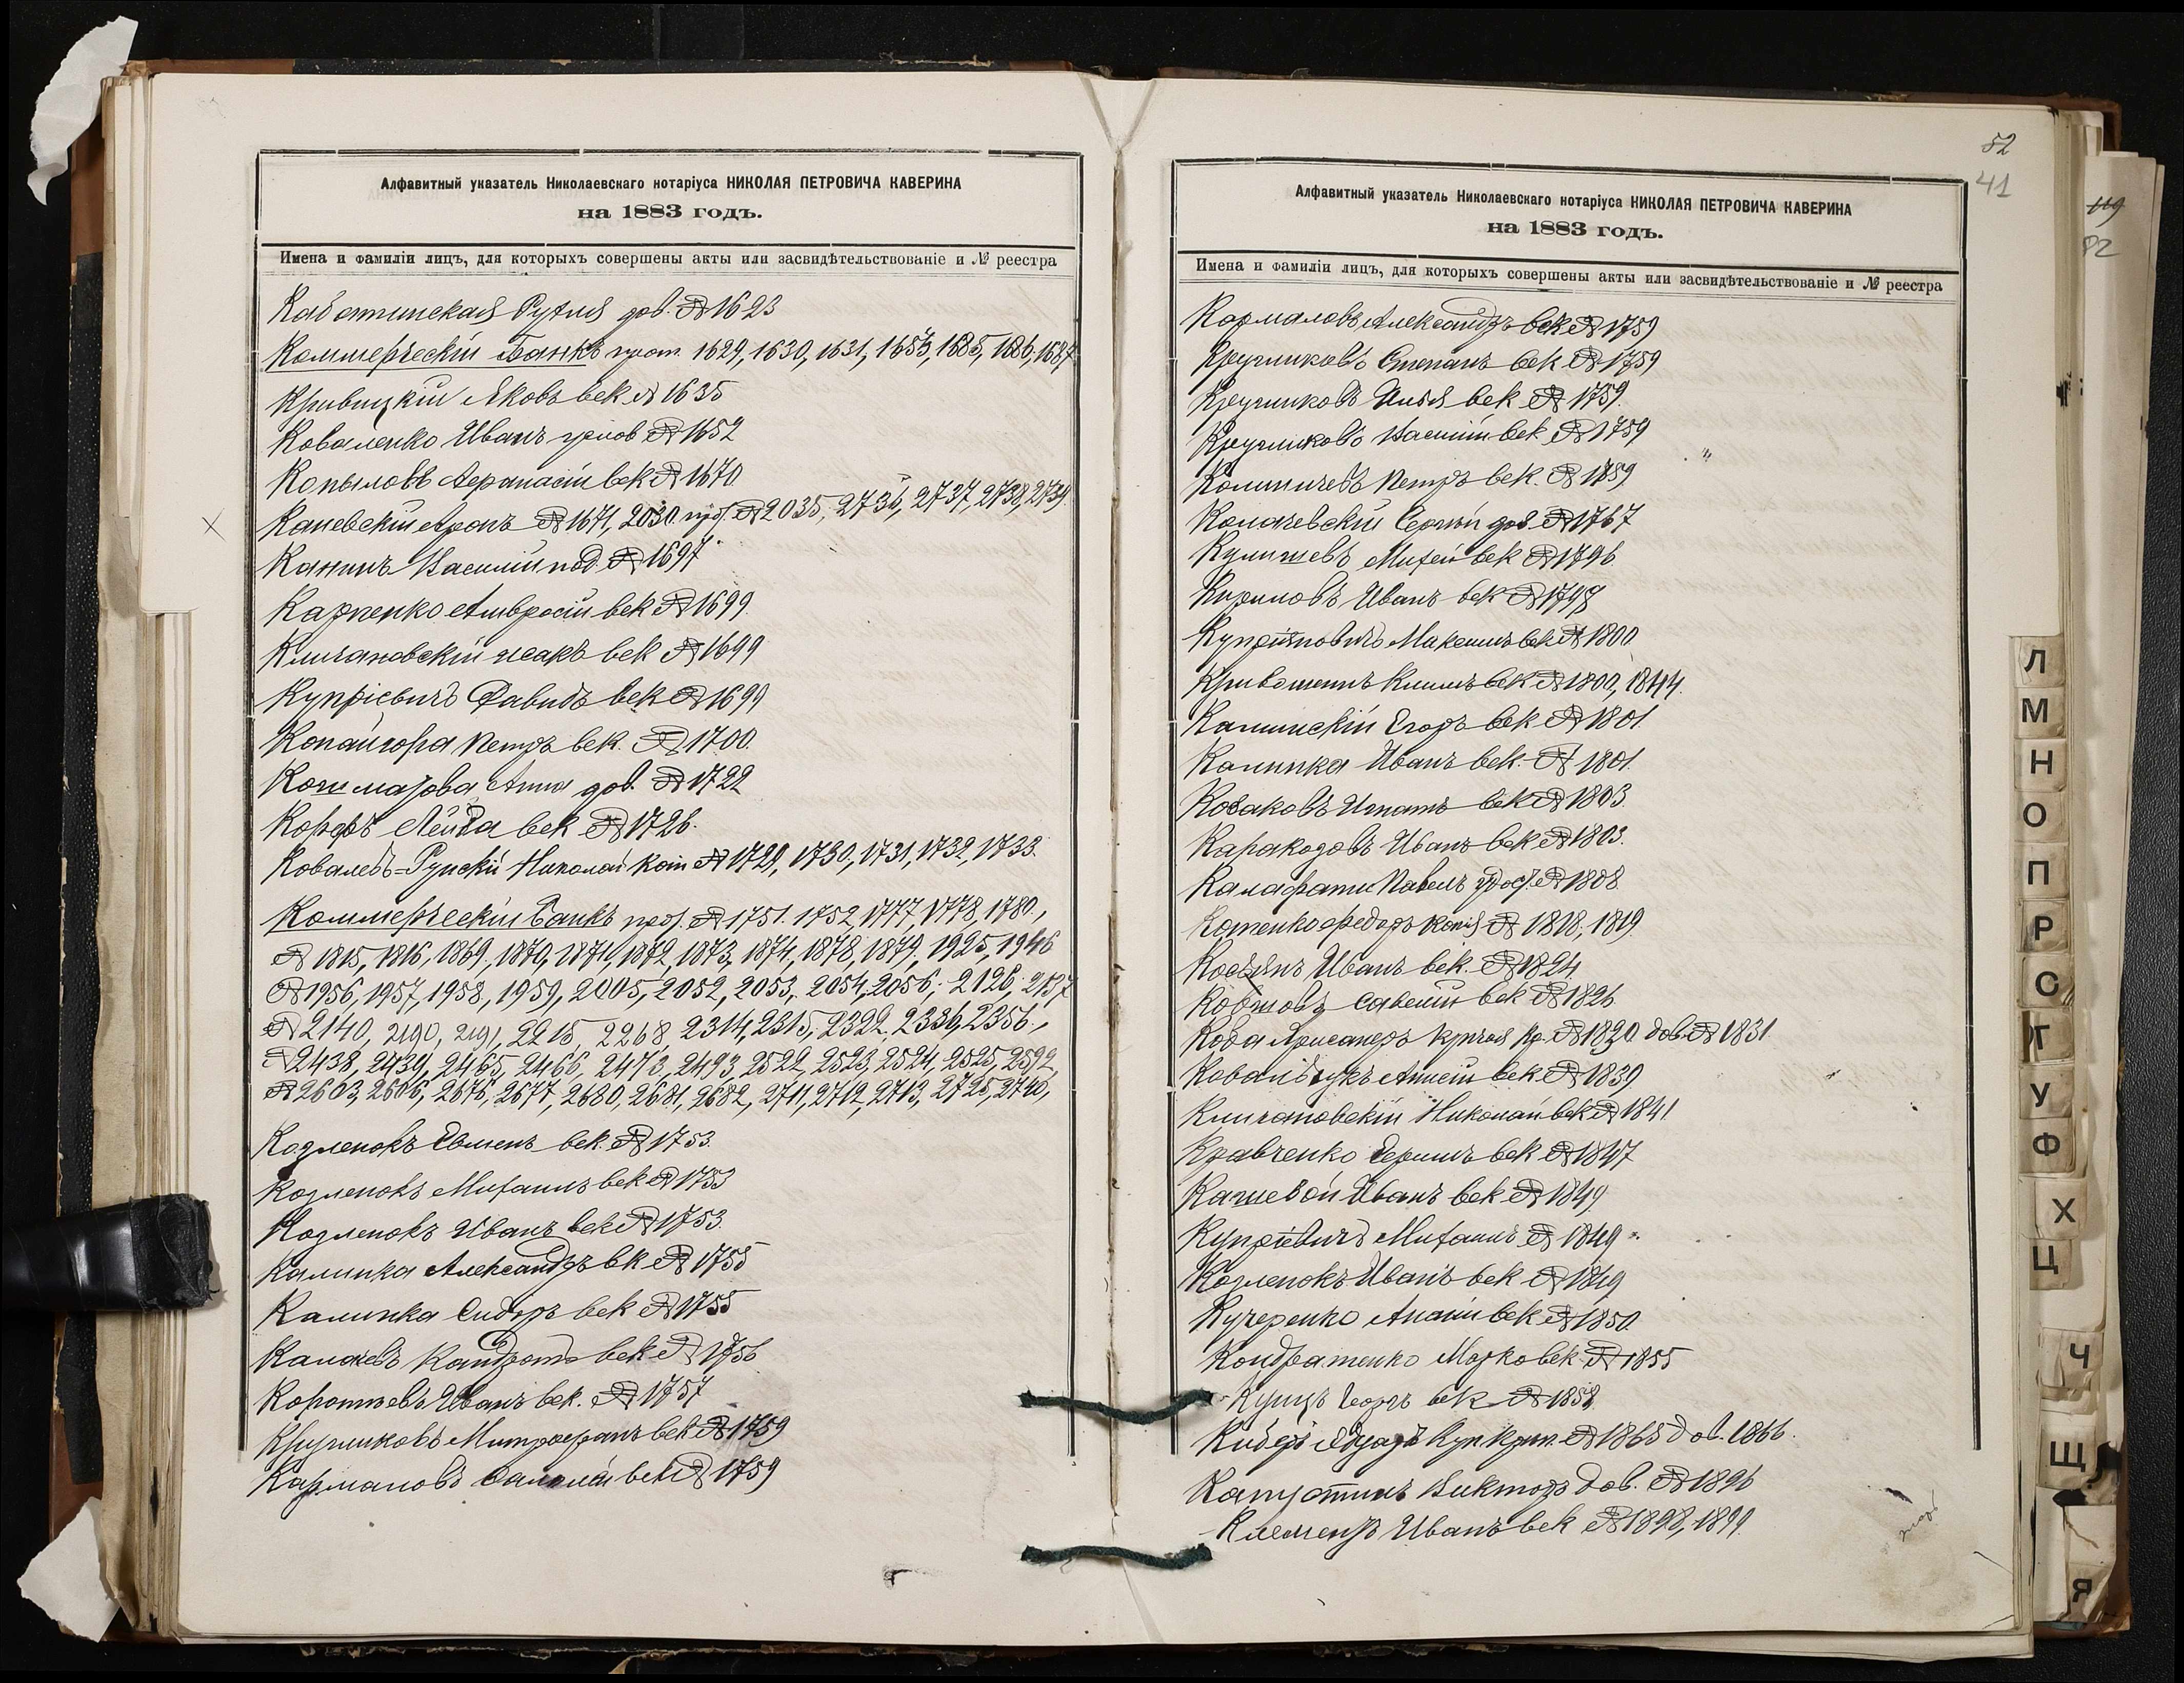 Алфавитный указатель Николаевскаго нотаріуса НИКОЛАЯ ПЕТРОВИЧА КАВЕРИНА
на 1883 годъ.
Имена и фамиліи лицъ, для которыхъ совершены акты или засвидѣтельствованіе и № реестра
дов. № 1623
Коммерческій Банкъ прот. 1629, 1630, 1631, 1653, 1685, 1686, 1687
Кривицкій Яковъ век № 1635
Коваленко Иванъ № 1652
Копыловъ Афанасій век № 1670
Каневскій Аронъ № 1671, 2030 № 2035, 2736, 2737, 2738, 2739.
Канинъ Василій № 1697
Карпенко Амвросій век № 1699
Клигановскій Исакъ век № 1699
Купріевичъ Давидъ век № 1699
Копайгора Петръ век. № 1700.
Анна дов. № 1722
Корфъ Лейба век № 1726.
Ковалевъ-Рунскій Николай коп № 1729, 1730, 1731, 1732, 1733.
Коммерческій Банкъ № 1751. 1752, 1777, 1778, 1780,
№ 1815, 1816, 1869, 1870, 1871, 1872, 1873, 1874, 1878, 1879, 1925, 1946
№ 1956, 1957, 1958, 1959, 2005, 2052, 2053, 2054, 2056, 2126, 2137
№ 2140, 2190, 2191, 2215, 2268, 2314, 2315, 2322, 2336, 2356,
№ 2438, 2439, 2465, 2466, 2473, 2493, 2522, 2523, 2524, 2525, 2592,
№ 2603, 2606, 2676, 2677, 2680, 2681, 2682, 2711, 2712, 2713, 2725, 2740,
Козленокъ Евменъ век. № 1753.
Козленокъ Михаилъ век № 1753
Козленокъ Иванъ век № 1753.
Калинка Александръ вк № 1755
Калинка Сидоръ век № 1755
Калачевъ Кандратъ век № 1756
Коротневъ Иванъ век. № 1757
Кругликовъ Митрофанъ век № 1759
Кармаловъ век № 1759
52
41
Алфавитный указатель Николаевскаго нотаріуса НИКОЛАЯ ПЕТРОВИЧА КАВЕРИНА
на 1883 годъ.
Имена и фамиліи лицъ, для которыхъ совершены акты или засвидѣтельствованіе и № реестра
Кормаловъ Александръ век № 1759
Кругликовъ Степанъ век № 1759
Кругликовъ Илья век № 1759.
Кругликовъ Василій век. № 1759
Петръ век. №
Колачевскій Сергѣй дов. № 1767
Кулишевъ Михей век № 1796
Кириловъ Иванъ век №
Купріяновичъ Максимъ век № 1800
Кривошеинъ Климъ век № 1800, 1844.
Калинскій Егоръ век № 1801
Калинка Иванъ век. № 1801
Козаковъ Игнатъ век № 1803.
Каракодовъ Иванъ век № 1803.
Калафати Павелъ № 1808
Котенко Федоръ копія № 1818, 1819.
Иванъ век. № 1824
Савелій век № 1826
№ 1830 дов. № 1831
Ковальчукъ век. № 1839
Клигановскій Николай век № 1841
Кравченко Герцимъ век № 1847
Кашевой Иванъ век № 1849
Купріевичъ Михаилъ № 1849
Козленокъ Иванъ век № 1849
Кучеренко Ананій век № 1850.
Кондратенко Марко век № 1855
Георгъ век № 1858.
№ 1865 дов. 1866.
Капустинъ Викторъ дов. № 1896
Клеменъ Иванъ век № 1898, 1899.
119
82
Л
М
Н
О
П
Р
С
Т
У
Ф
Х
Ц
Ч
Щ
Я